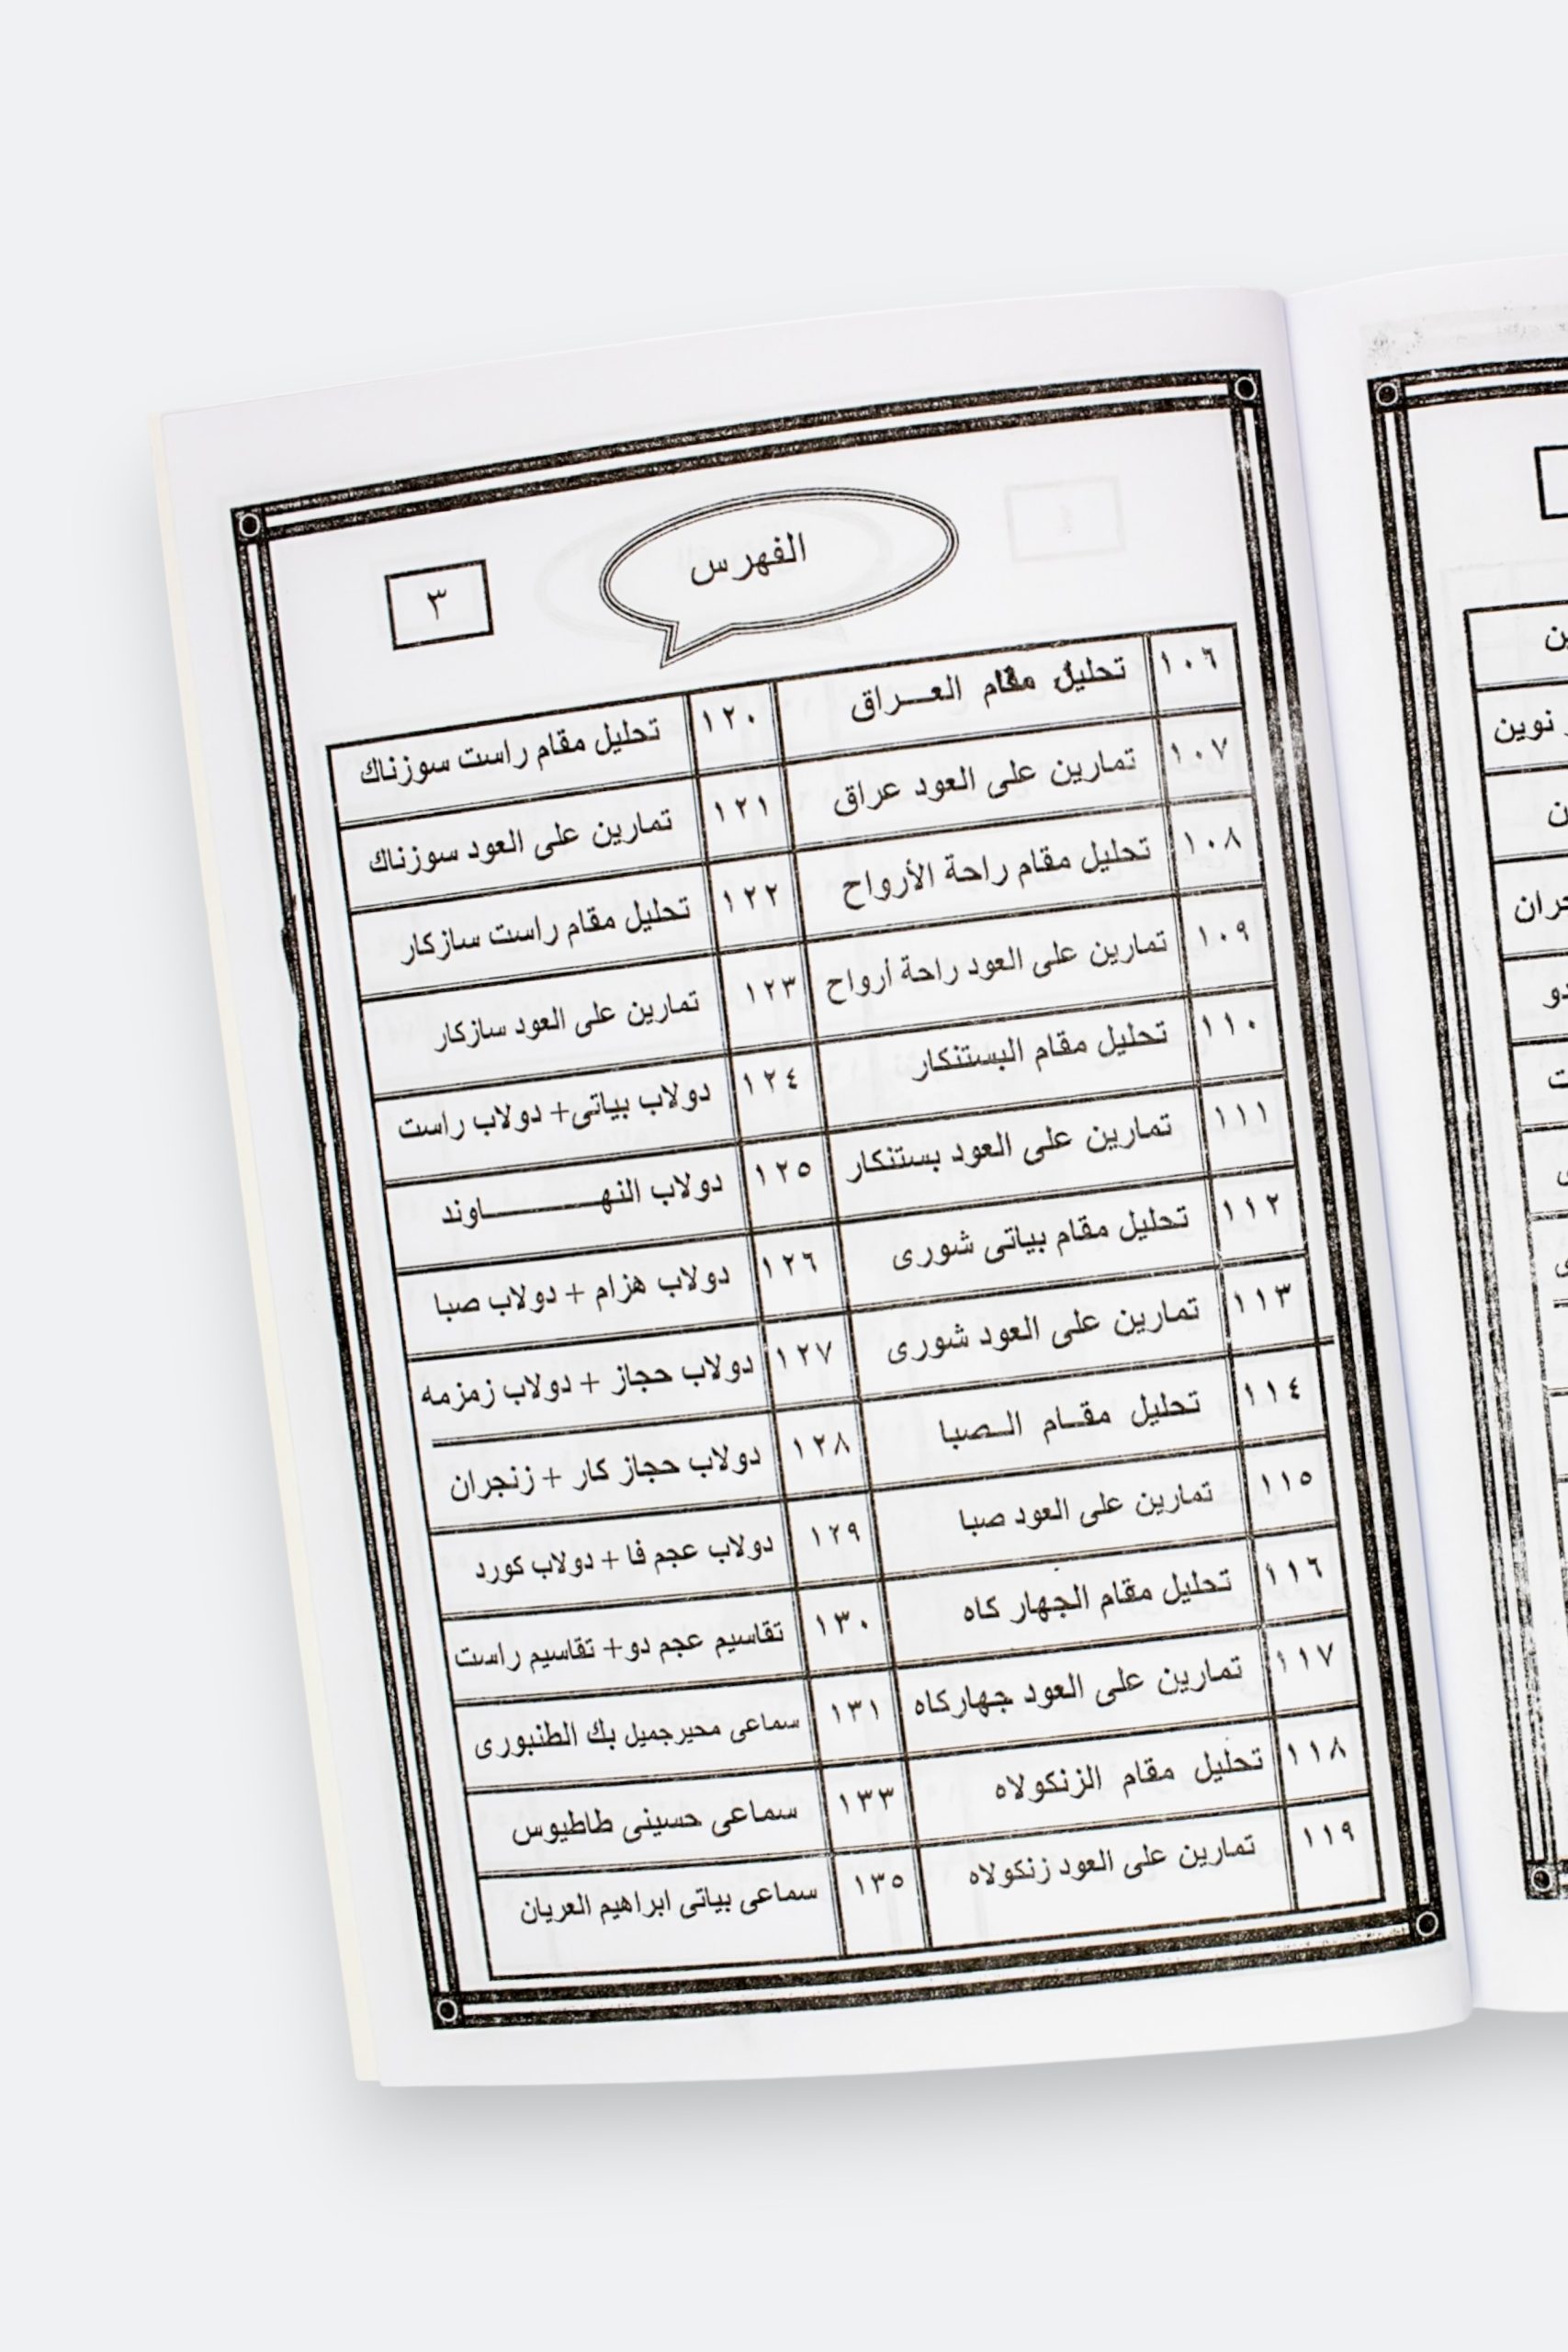 الفهرس
٣
١٠٦ تحليل مقام العــراق
١٠٧ تمارين على العود عراق
١٠٨ تحليل مقام راحة الأرواح
١٠٩ تمارين على العود راحة أرواح
١١٠ تحليل مقام البستنكار
١١١ تمارين على العود بستنكار
١١٢ تحليل مقام بياتى شورى
١١٣ تمارين على العود شورى
١١٤ تحليل مقــام الــصبا
١١٥ تمارين على العود صبا
١١٦ تحليل مقام الجهار كاه
١١٧ تمارين على العود جهاركاه
١١٨ تحليل مقام الزنكولاه
١١٩ تمارين على العود زنكولاه
١٢٠ تحليل مقام راست سوزناك
١٢١ تمارين على العود سوزناك
١٢٢ تحليل مقام راست سازكار
١٢٣ تمارين على العود سازكار
١٢٤ دولاب بياتى+ دولاب راست
١٢٥ دولاب النهــــــــاوند
١٢٦ دولاب هزام + دولاب صبا
١٢٧ دولاب حجاز + دولاب زمزمه
١٢٨ دولاب حجاز كار + زنجران
١٢٩ دولاب عجم فا + دولاب كورد
١٣٠ تقاسيم عجم دو+ تقاسيم راست
١٣١ سماعى محيرجميل بك الطنبورى
١٣٣ سماعى حسينى طاطيوس
١٣٥ سماعى بياتى ابراهيم العريان
نوين